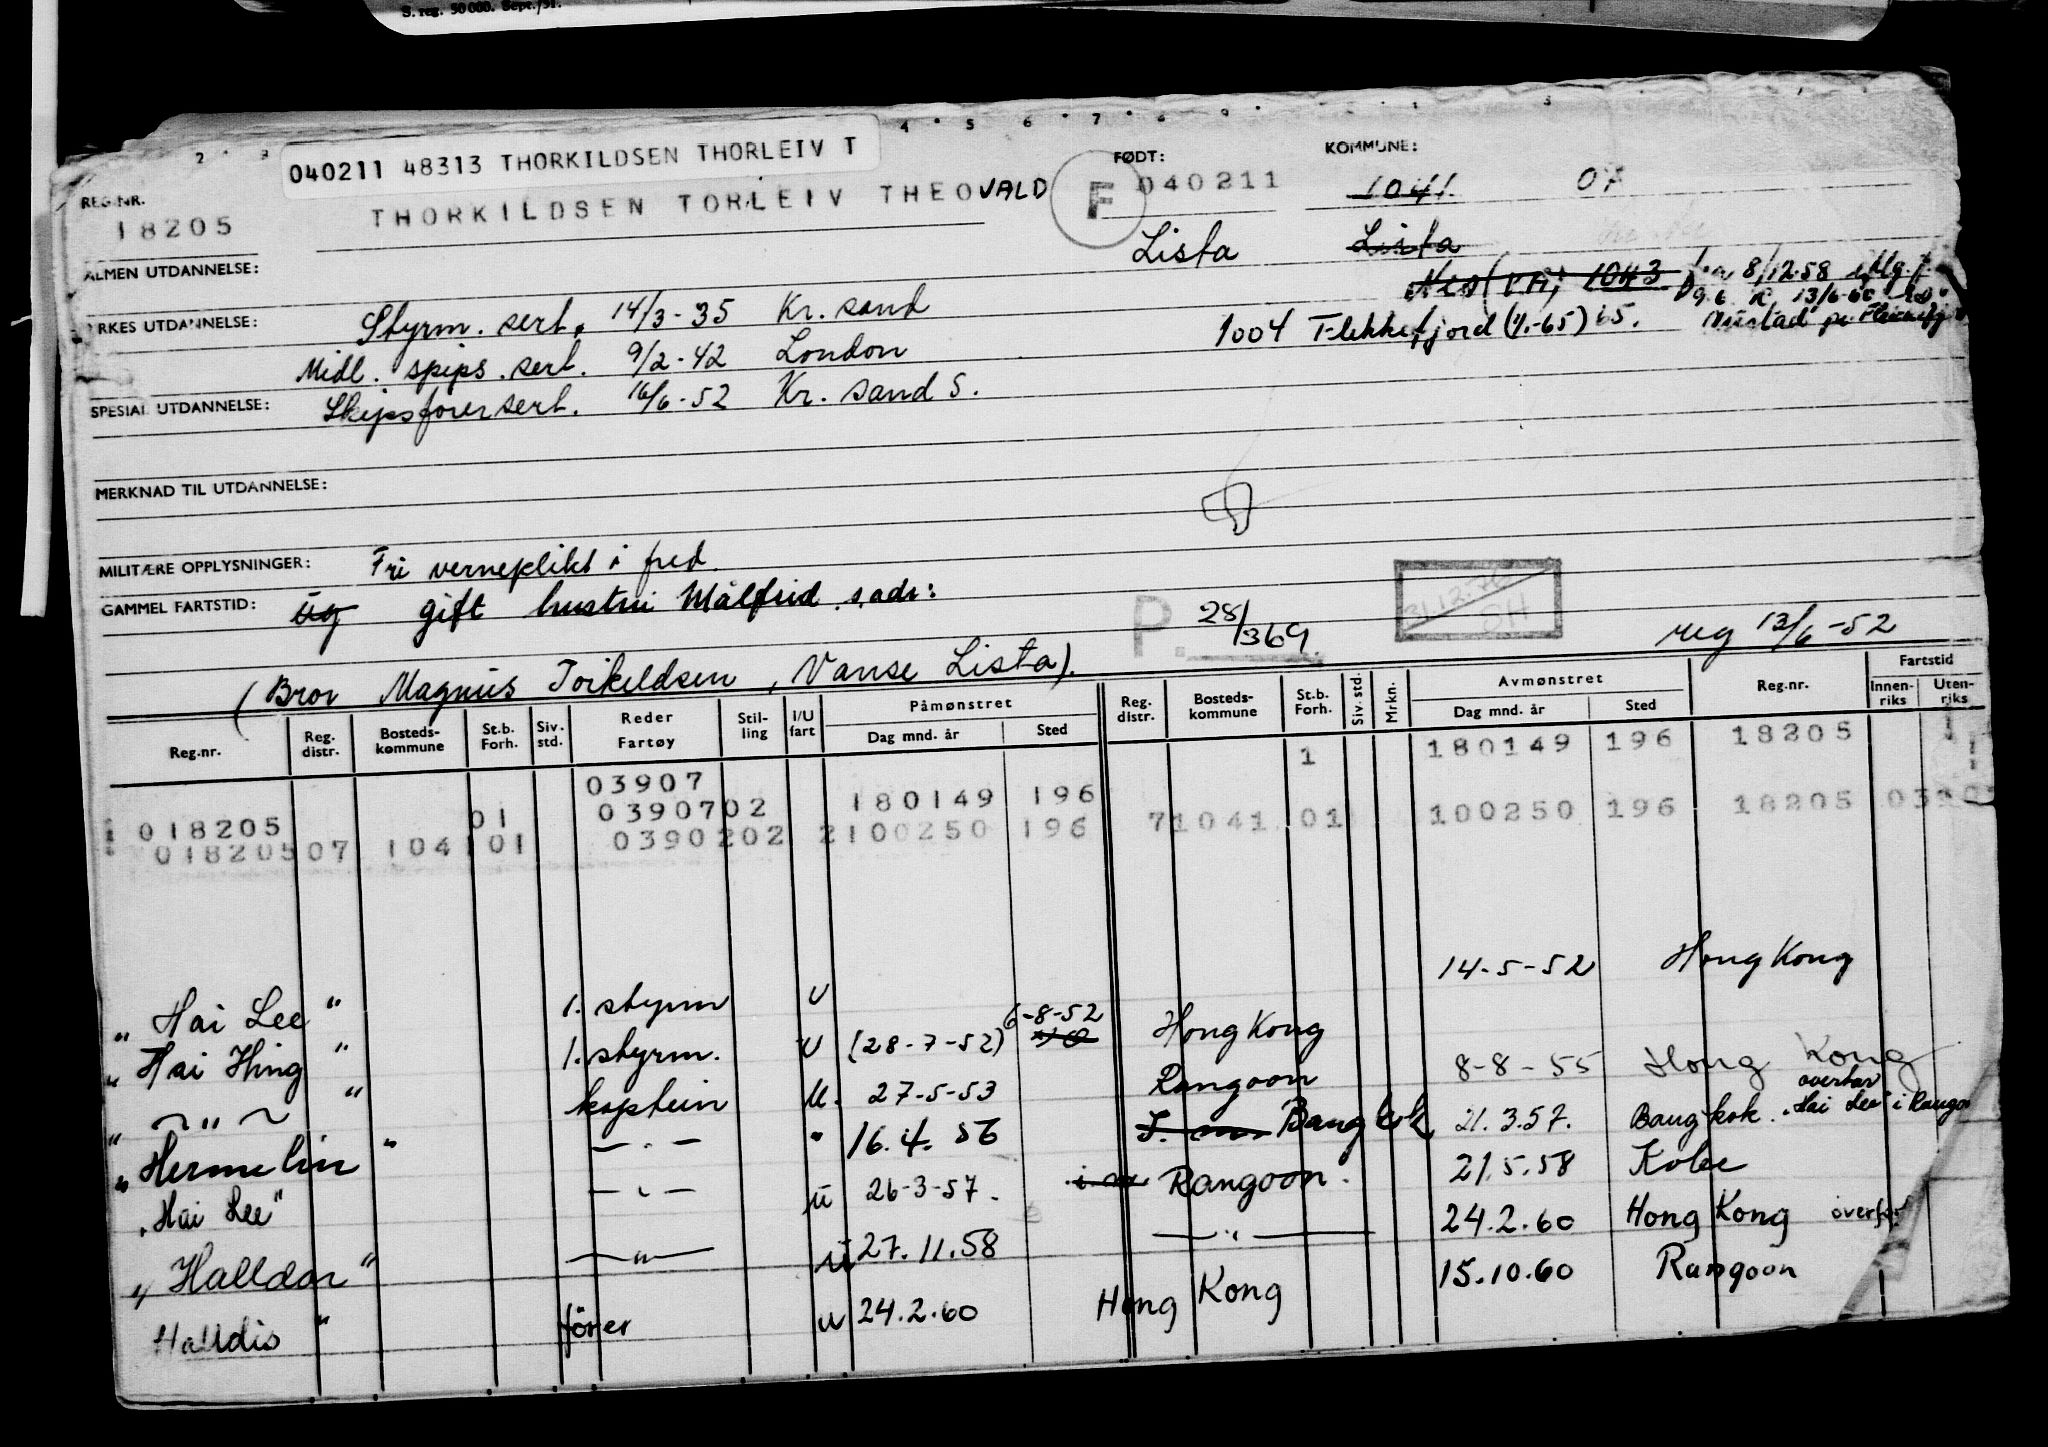 S. reg. 50 000. Sept./51.
040211 48313 THORKILDSEN THORLEIV T
REG.NR.
18205
THORKILDSEN TORLEIV THEOVALD
F
FØDT:
040211
KOMMUNE:
1041
07
Lista
Lista
ALMEN UTDANNELSE:
1043
8/12.58
13/6-60
YRKES UTDANNELSE: Styrm. sert. 14/3-35 Kr. sand
1004 Flekkefjord (1/1-65) 65.
Midl. skips. sert. 9/2-42 London
SPESIAL UTDANNELSE: Skipsførersert. 16/6-52 Kr. sand S.
MERKNAD TIL UTDANNELSE:
MILITÆRE OPPLYSNINGER: Fri verneplikt i fred.
GAMMEL FARTSTID: ug gift hustru Målfrid s. adr:
P. 28/369
31.12.76
reg 13/6-52
(Bror Magnus Torkildsen, Vanse Lista).
Reg.nr. Reg. distr. Bosteds-kommune St.b. Forh. Siv. std. Reder Fartøy Stil-ling I/U fart Påmønstret Dag mnd. år Sted Reg. distr. Bosteds-kommune St.b. Forh. Siv. std. Mrkn. Avmønstret Dag mnd. år Sted Reg.nr. Fartstid Innen-riks Uten-riks
03907 1 180149 196 18205
018205 01 0390702 180149 196 71041 01 100250 196 18205
01820507 104101 0390202 2100250 196
14-5-52 Hong Kong
"Hai Lee" 1. styrm U
"Hai Hing" 1. styrm. U (28-7-52) 6-8-52 Hong Kong
" — " — " kaptein U. 27-5-53 Rangoon 8-8-55 Hong Kong
"Hermelin" — " — " 16.4.56 Bangkok 21.3.57. Bangkok. overtar "Hai Lee" i Rangoon
"Hai Lee" — " — u 26-3-57. Rangoon. 21.5.58 Kobe
"Halldor" — " — u 27.11.58 — " — 24.2.60 Hong Kong
Halldis " förer u 24.2.60 Hong Kong 15.10.60 Rangoon